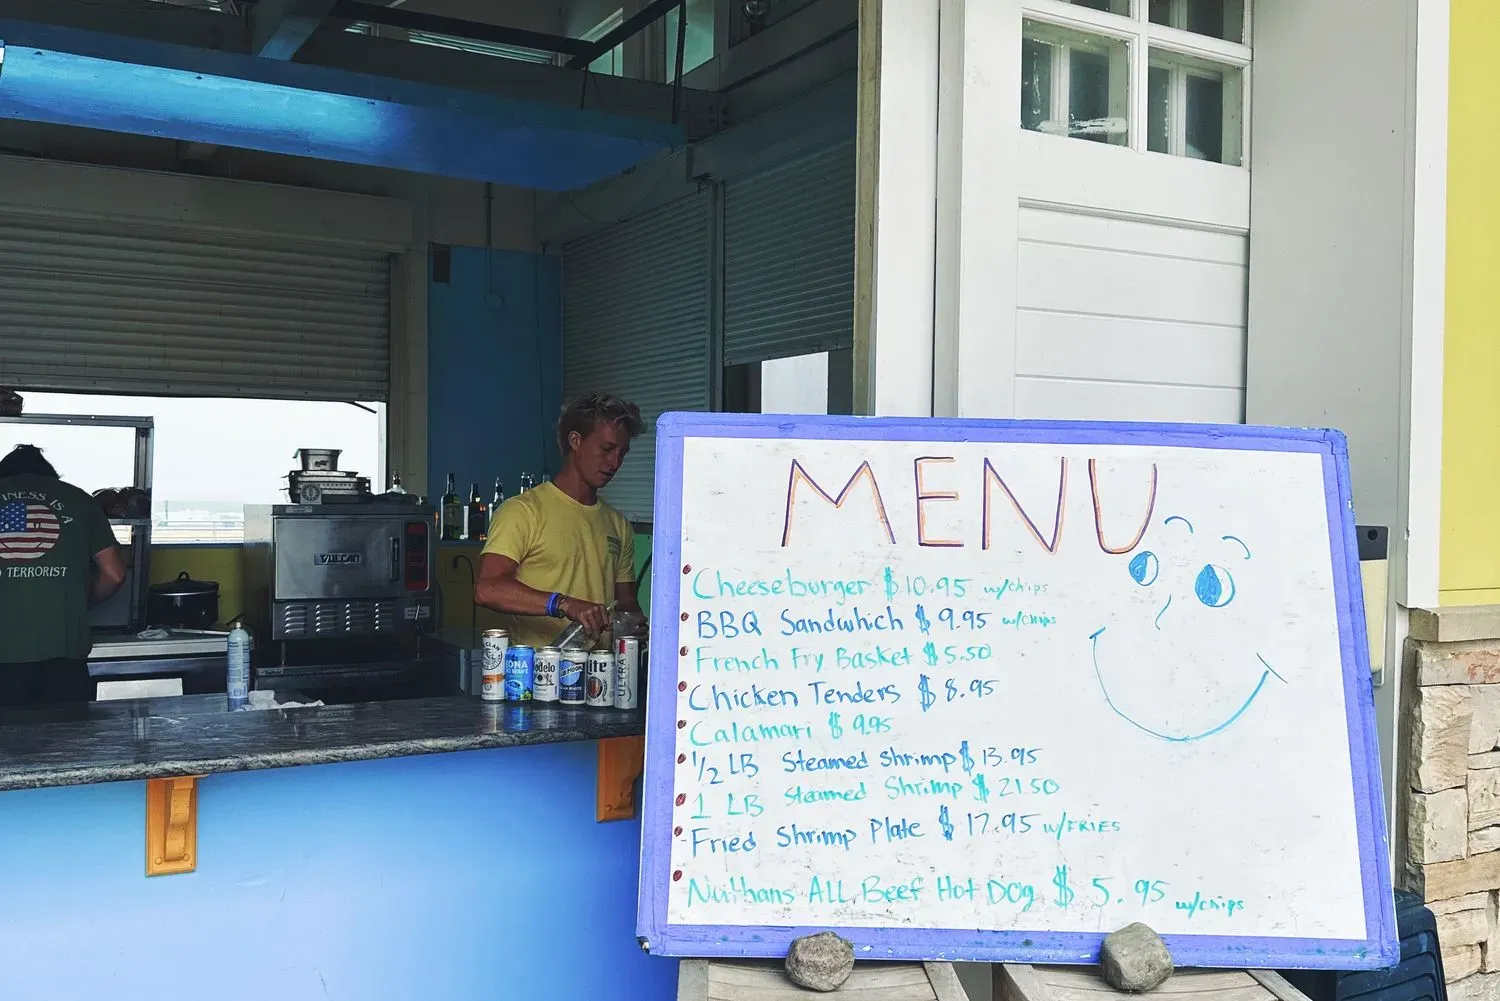 MENU
Cheeseburger $10.95 w/chips
BBQ Sandwhich $9.95 w/chips
French Fry Basket $5.50
Chicken Tenders $8.95
Calamari $9.95
1/2 LB Steamed Shrimp $13.95
1 LB Steamed Shrimp $21.50
Fried Shrimp Plate $17.95 w/FRIES
Nathans ALL Beef Hot Dog $5.95 w/chips
INESS IS A
TERRORIST
VULCAN
CLAW
KONA
WAVE
odelo
MOON
lite
ULTRA